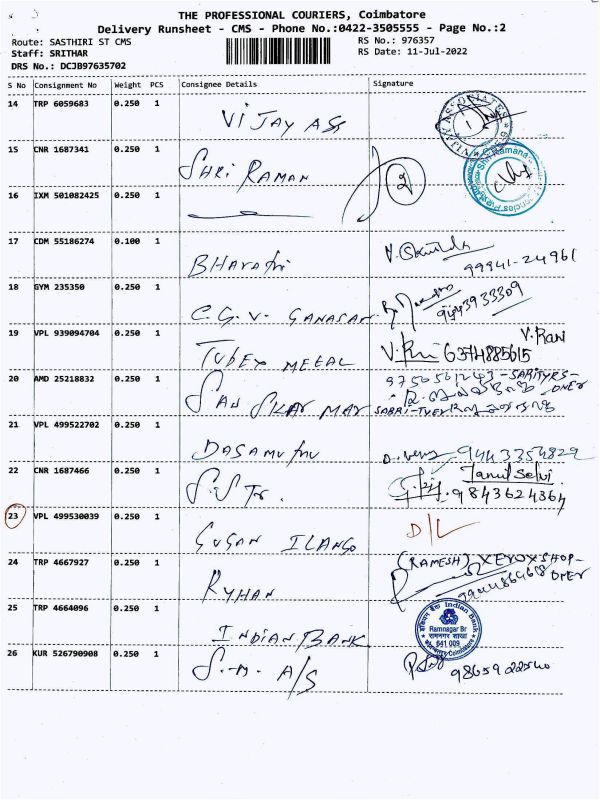 THE PROFESSIONAL COURIERS, Coimbatore
Delivery Runsheet - CMS - Phone No.:0422-3505555 - Page No.:2
Route: SASTHIRI ST CMS
RS No.: 976357
Staff: SRITHAR
RS Date: 11-Jul-2022
DRS No.: DCJB97635702
S No Consignment No Weight PCS Consignee Details Signature
14 TRP 6059683 0.250 1 VIJAY ASS
VIJAY ASSOCIATES
15 CNR 1687341 0.250 1 SHRI RAMAN 2
Shri Ramana
16 IXM 501082425 0.250 1
17 CDM 55186274 0.100 1 BHARATHI
99941-24961
18 GYM 235350 0.250 1 C.G.V. GANASAN
9443933309
19 VPL 939094704 0.250 1 TUBEX METAL V. Rani
6374885615
20 AMD 25218832 0.250 1
21 VPL 499522702 0.250 1 DASAMUTHU
9443354829
22 CNR 1687466 0.250 1 Tamil Selvi
9843624364
23 VPL 499530039 0.250 1 SUGAN ILANGO D/L
24 TRP 4667927 0.250 1 RYHAN (RAMESH) XEROX SHOP-
25 TRP 4664096 0.250 1 INDIAN BANK
Indian Bank
Ramnagar Br
रामनगर शाखा
641 009
Coimbatore
26 KUR 526790908 0.250 1 S.M. A/S